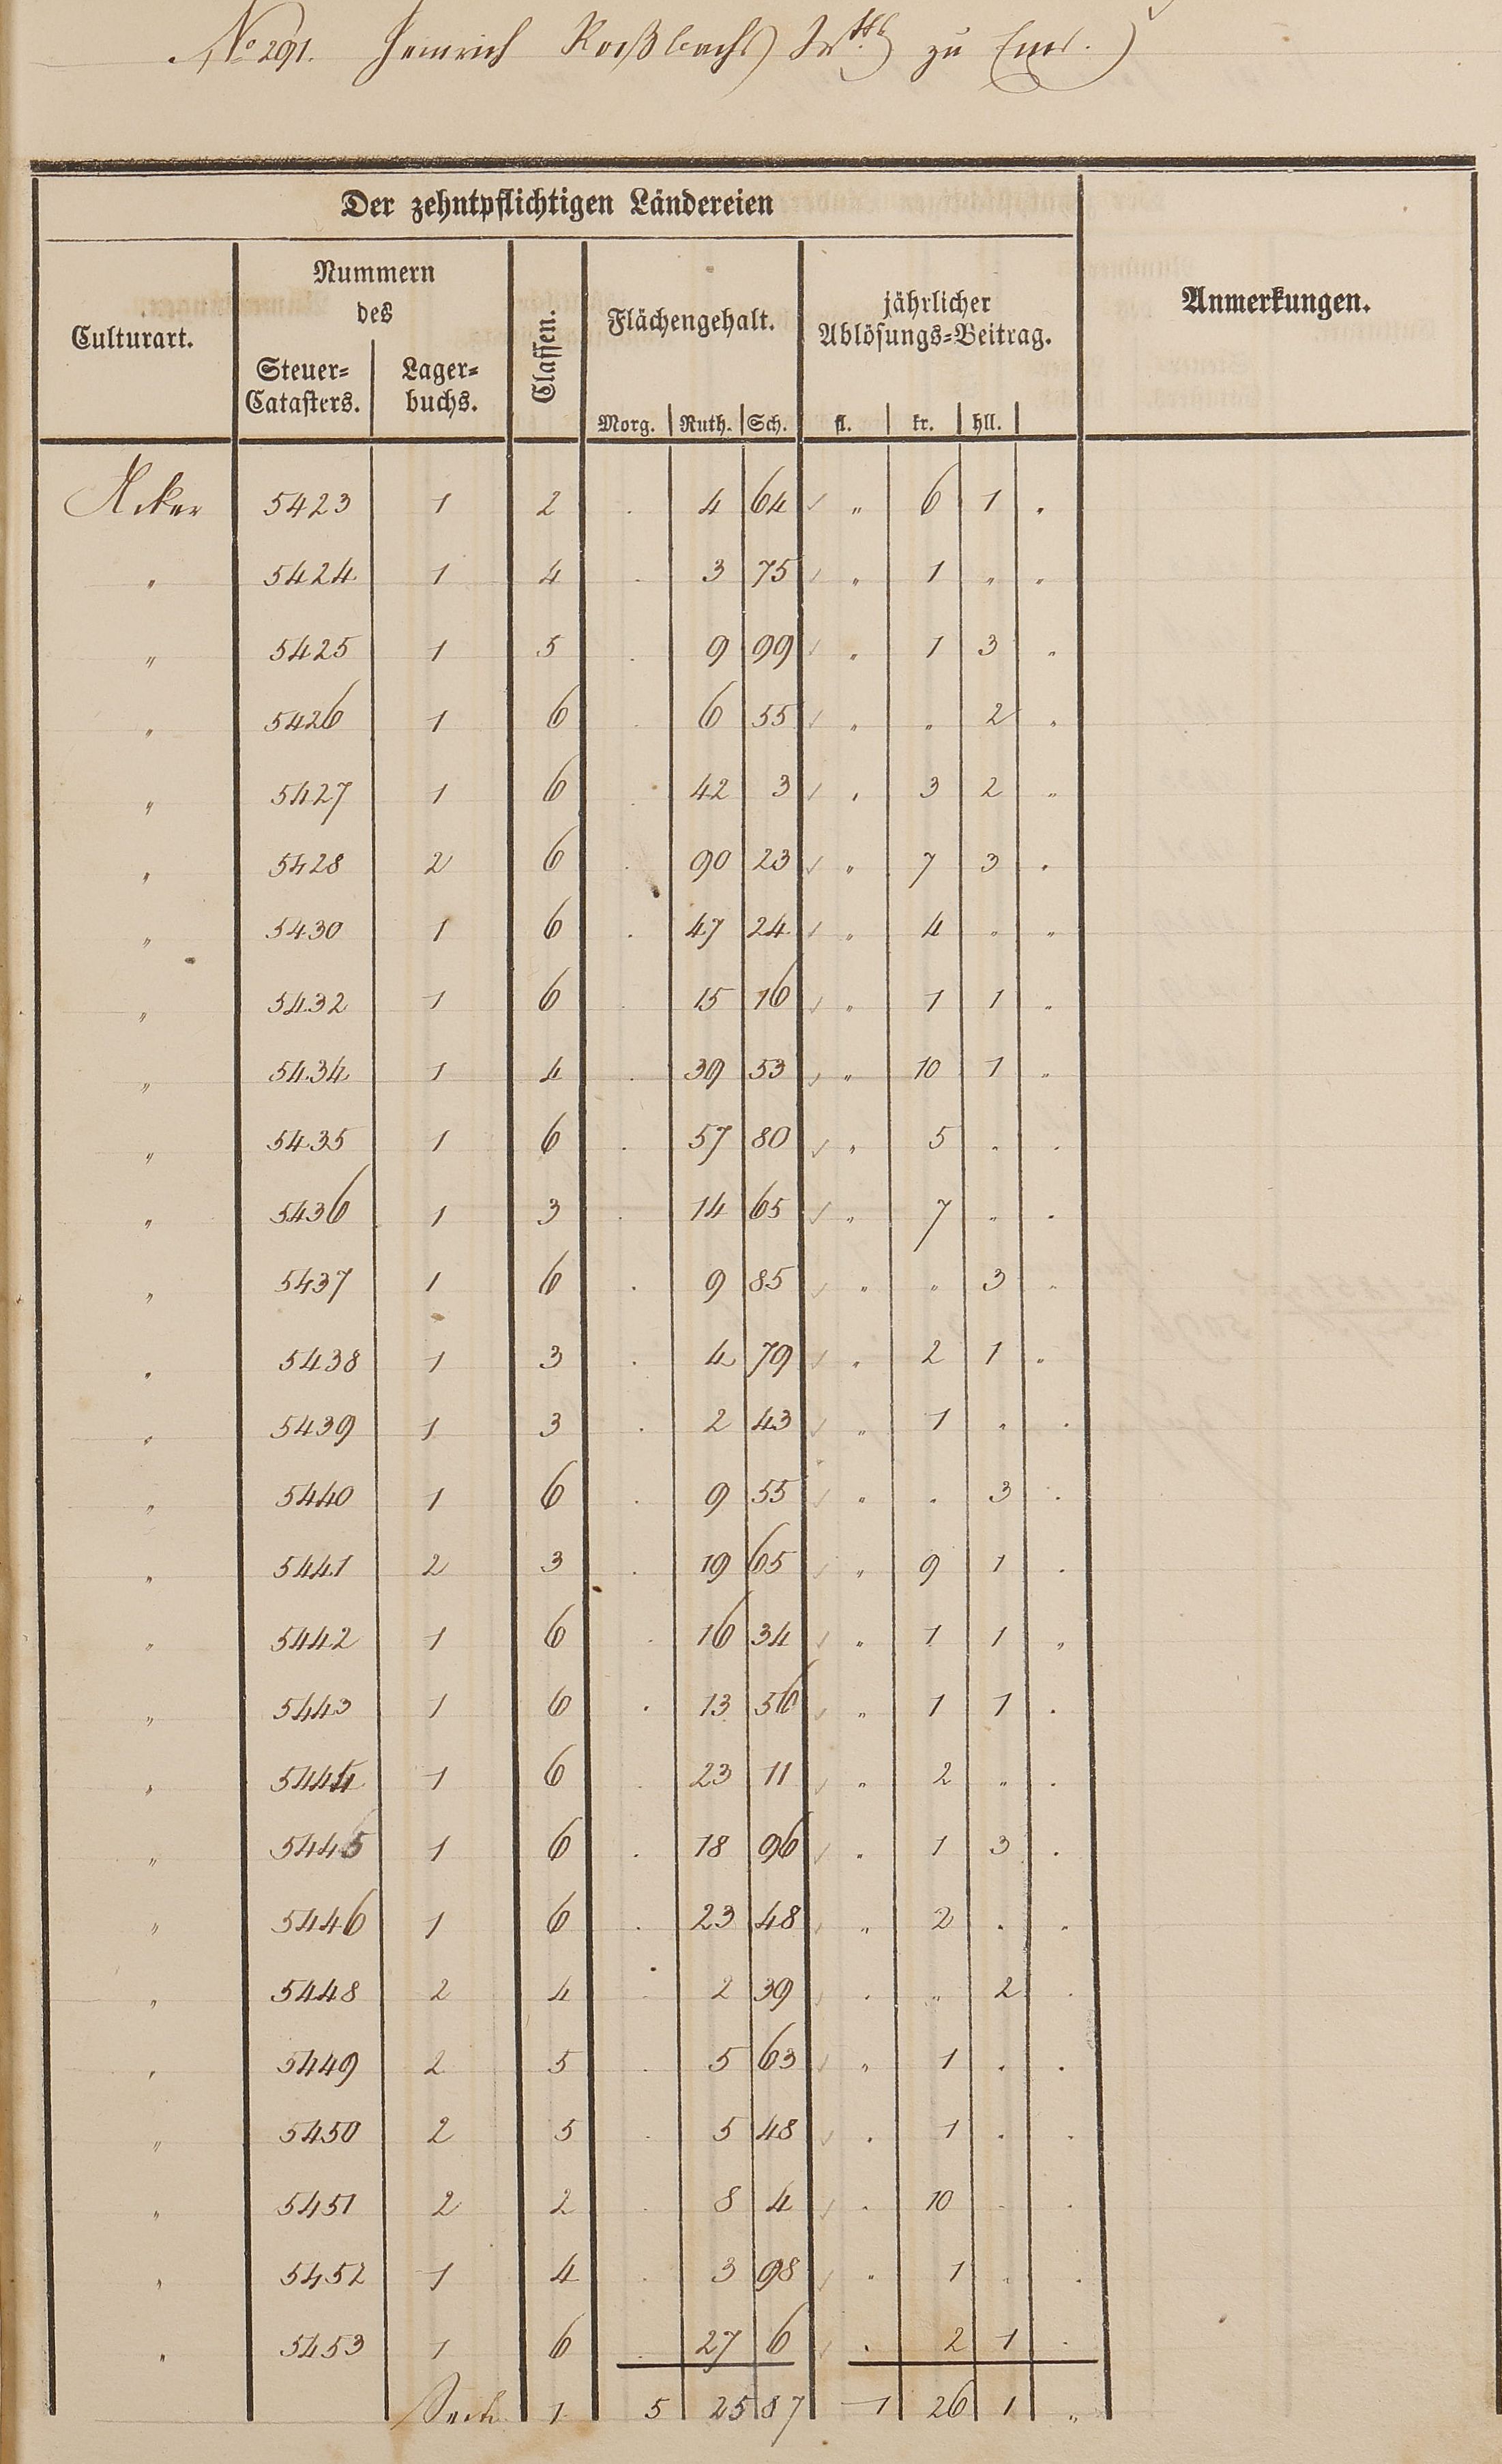 No 291. Heinrich Roßbachs Wtb zu Ems.
Der zehntpflichtigen Ländereien
Culturart. Nummern des Classen. Flächengehalt. jährlicher Ablösungs-Beitrag. Anmerkungen.
Steuer-Catasters. Lager-buchs. Morg. Ruth. Sch. fl. kr. hll.
Acker 5423 1 2 . 4 64 ✓ „ 6 1 .
„ 5424 1 4 . 3 75 ✓ „ 1 „ „
„ 5425 1 5 . 9 99 ✓ „ 1 3 „
„ 5426 1 6 . 6 55 ✓ „ „ 2 „
„ 5427 1 6 . 42 3 ✓ „ 3 2 „
„ 5428 2 6 . 90 23 ✓ „ 7 3 .
„ 5430 1 6 . 47 24 ✓ „ 4 „ „
„ 5432 1 6 . 15 16 ✓ „ 1 1 „
„ 5434 1 4 . 39 53 ✓ „ 10 1 „
„ 5435 1 6 . 57 80 ✓ „ 5 . .
„ 5436 1 3 . 14 65 ✓ „ 7 „ .
„ 5437 1 6 . 9 85 ✓ „ „ 3 „
„ 5438 1 3 . 4 79 ✓ „ 2 1 „
„ 5439 1 3 . 2 43 ✓ „ 1 „ .
„ 5440 1 6 . 9 55 ✓ „ . 3 .
„ 5441 2 3 . 19 65 ✓ „ 9 1 .
„ 5442 1 6 . 16 34 ✓ „ 1 1 „
„ 5443 1 6 . 13 56 ✓ „ 1 1 .
„ 5444 1 6 . 23 11 ✓ „ 2 „ .
„ 5445 1 6 . 18 96 ✓ „ 1 3 .
„ 5446 1 6 . 23 48 ✓ „ 2 . „
„ 5448 2 4 . 2 39 ✓ . „ 2 .
„ 5449 2 5 . 5 63 ✓ „ 1 . .
„ 5450 2 5 . 5 48 ✓ . 1 . .
„ 5451 2 2 . 8 4 ✓ . 10 . .
„ 5452 1 4 . 3 98 ✓ „ 1 . .
„ 5453 1 6 . 27 6 ✓ . 2 1 .
Seite 1 5 25 87 1 26 1 „